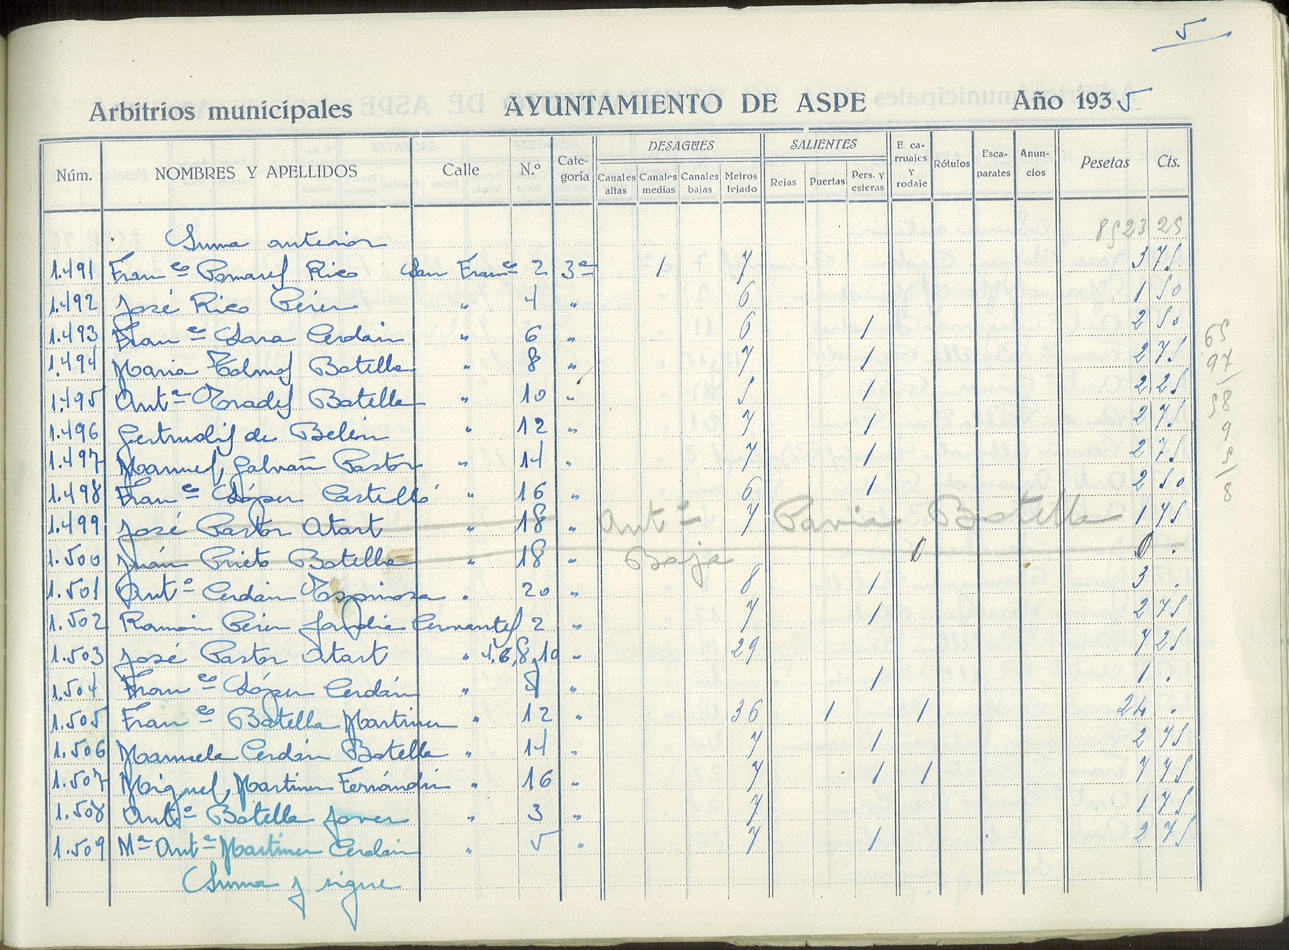 5
Arbitrios municipales AYUNTAMIENTO DE ASPE Año 1935
Núm. NOMBRES Y APELLIDOS Calle N.º Categoría DESAGÜES Canales altas Canales medias Canales bajas Metros tejado SALIENTES Rejas Puertas Pers. y esteras E. carruajes y rodaje Rótulos Escaparates Anuncios Pesetas Cts.
Suma anterior 8523 25
1.491 Fran.co Pomares Rico San Fran.co 2 3ª 1 7 3 75
1.492 José Rico Pérez " 4 " 6 1 50
1.493 Fran.co Lara Cerdán " 6 " 6 1 2 50
1.494 María Tolmos Botella " 8 " 7 1 2 75
1.495 Ant.º Prades Botella 10 " 5 1 2 25
1.496 Gertrudis de Belén " 12 " 7 1 2 75
1.497 Manuel Galván Pastor " 14 " 7 1 2 75
1.498 Fran.co López Castelló " 16 " 6 1 2 50
1.499 José Pastor Atart " 18 " Ant.ª 7 Pavía Botella 1 75
1.500 Juán Prieto Botella " 18 " Baja 0 0 .
1.501 Ant.º Cerdán Espinosa " 20 " 8 1 3 .
1.502 Ramón Pérez Cervantes 2 " 7 1 2 75
1.503 José Pastor Atart " 4,6,8,10 " 29 7 25
1.504 Fran.co López Cerdán " " 1 1 .
1.505 Fran.co Botella Martínez " 12 " 36 1 1 24 .
1.506 Manuela Cerdán Botella " 14 " 7 1 2 75
1.507 Miguel Martínez Fernández " 16 " 7 1 1 7 75
1.508 Ant.º Botella Jover " 3 " 7 1 75
1.509 Mª Ant.ª Martínez Cerdán " 5 " 7 1 2 75
Suma y sigue
65
97
58
9
5
8